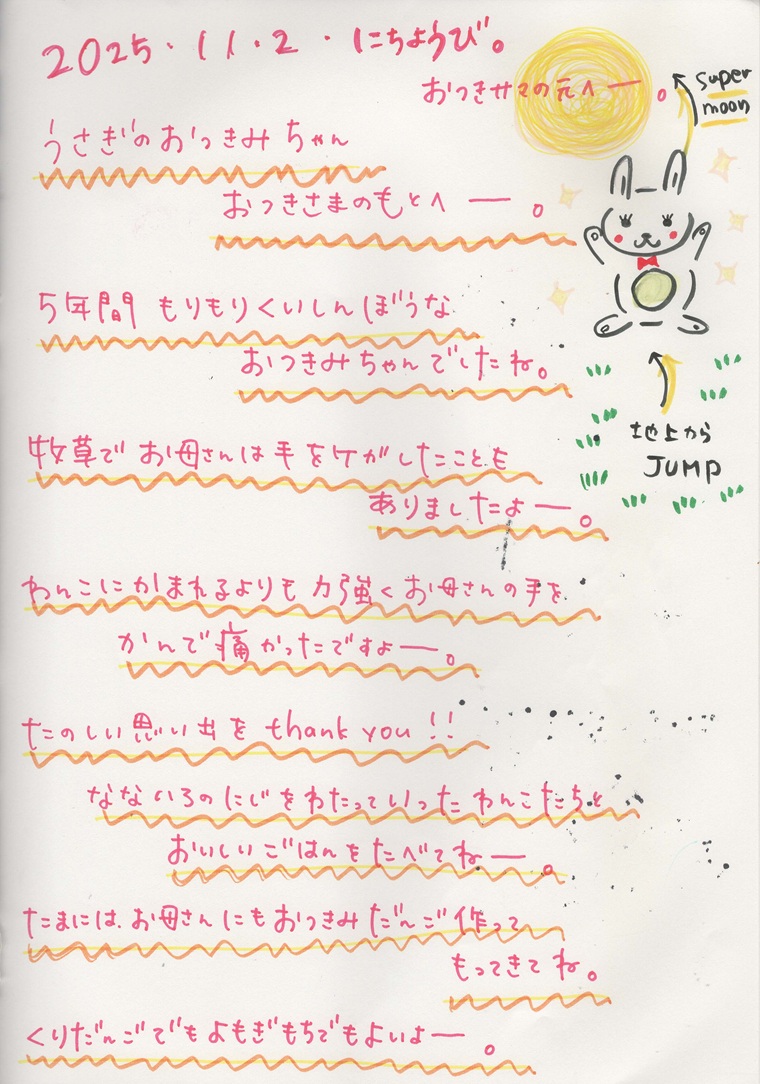 2025・11・2・にちようび。
おつきサマの元へー。
super
moon
うさぎのおつきみちゃん
おつきさまのもとへー。
5年間 もりもりくいしんぼうな
おつきみちゃんでしたね。
地上から
JUMP
牧草で お母さんは手をケガしたことも
ありましたよー。
わんこにかまれるよりも 力強くお母さんの手を
かんで痛かったですよー。
たのしい思い出を thank you !!
なないろのにじをわたっていったわんこたちと
おいしいごはんをたべてね ー。
たまには、お母さんにもおつきみだんご作って
もってきてね。
くりだんごでもよもぎもちでもよいよー。